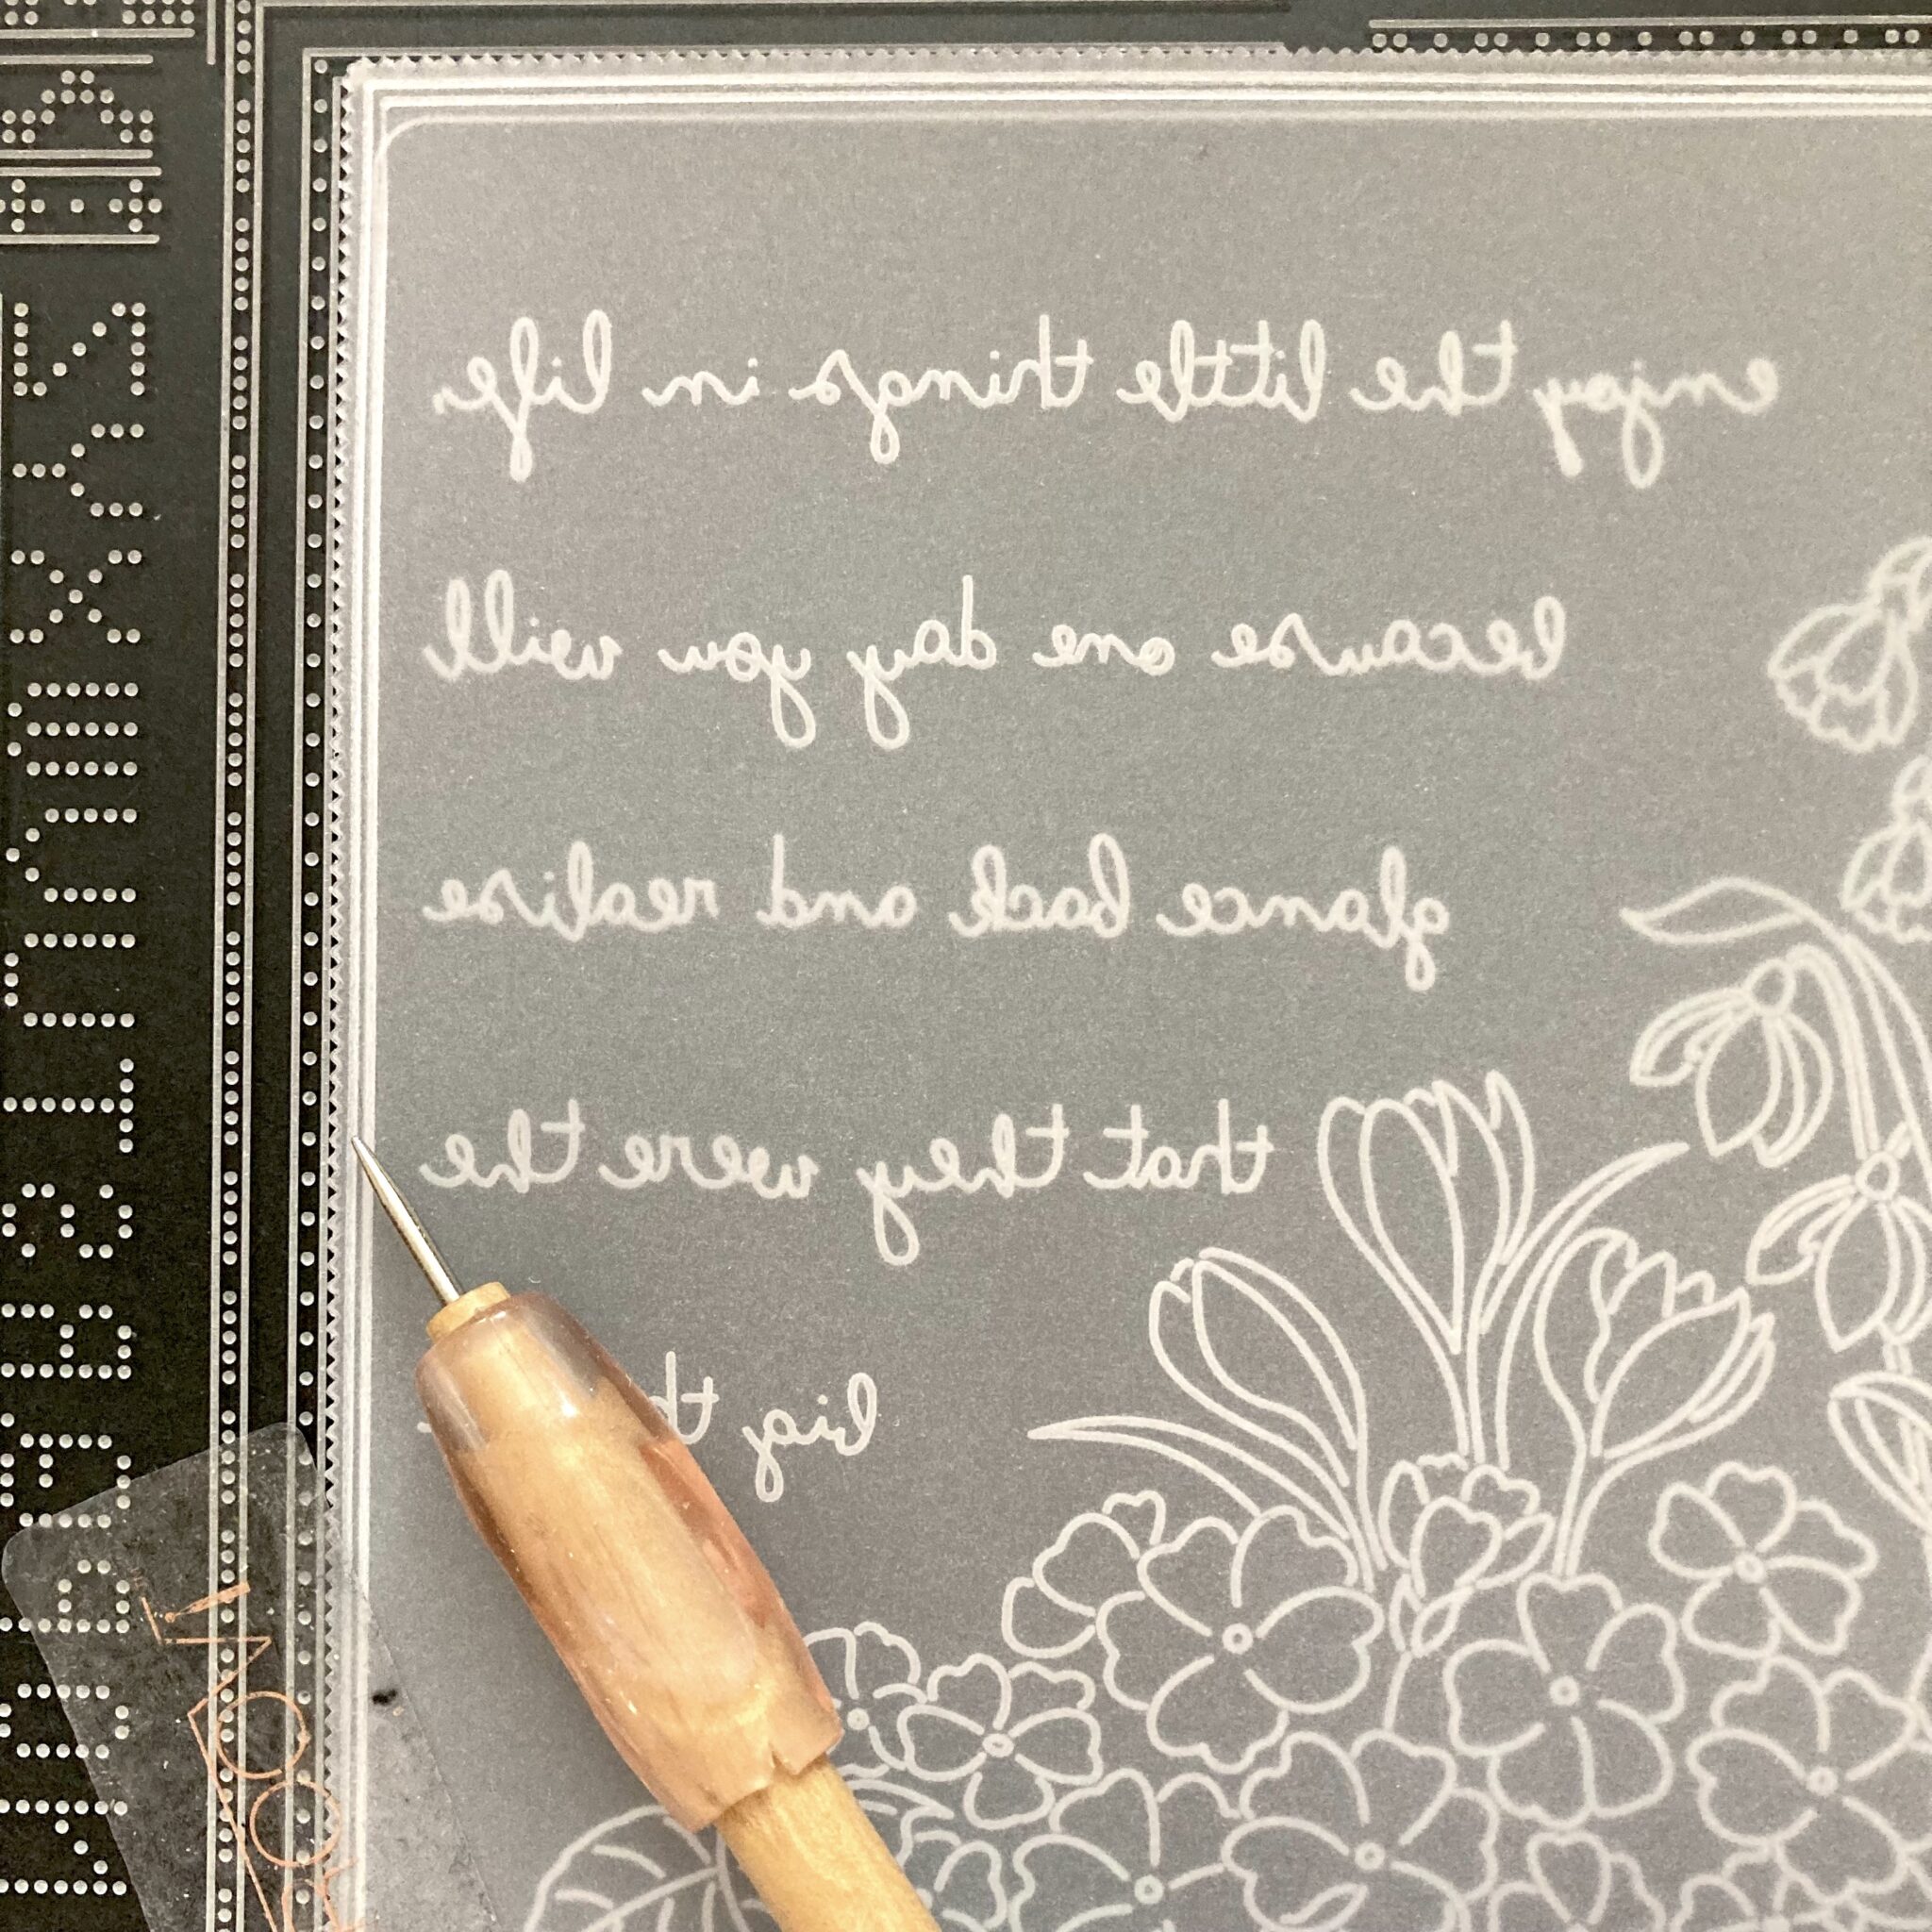 enjoy the little things in life,
because one day you will
glance back and realise
that they were the
big